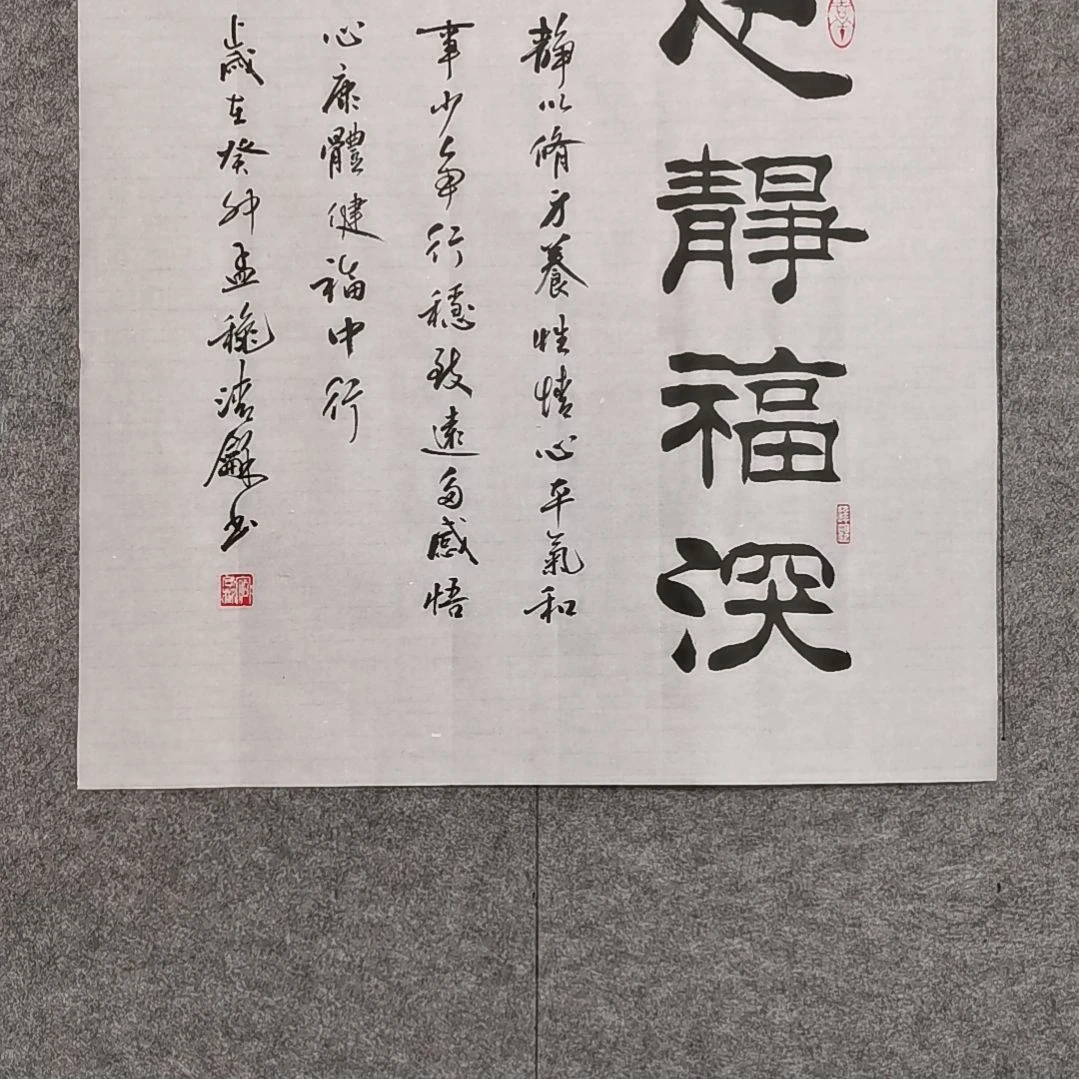 靜福深
静以脩身養性情心平氣和
事少争行穩致遠多感悟
心康體健福中行
歲在癸卯孟秋浩龢书